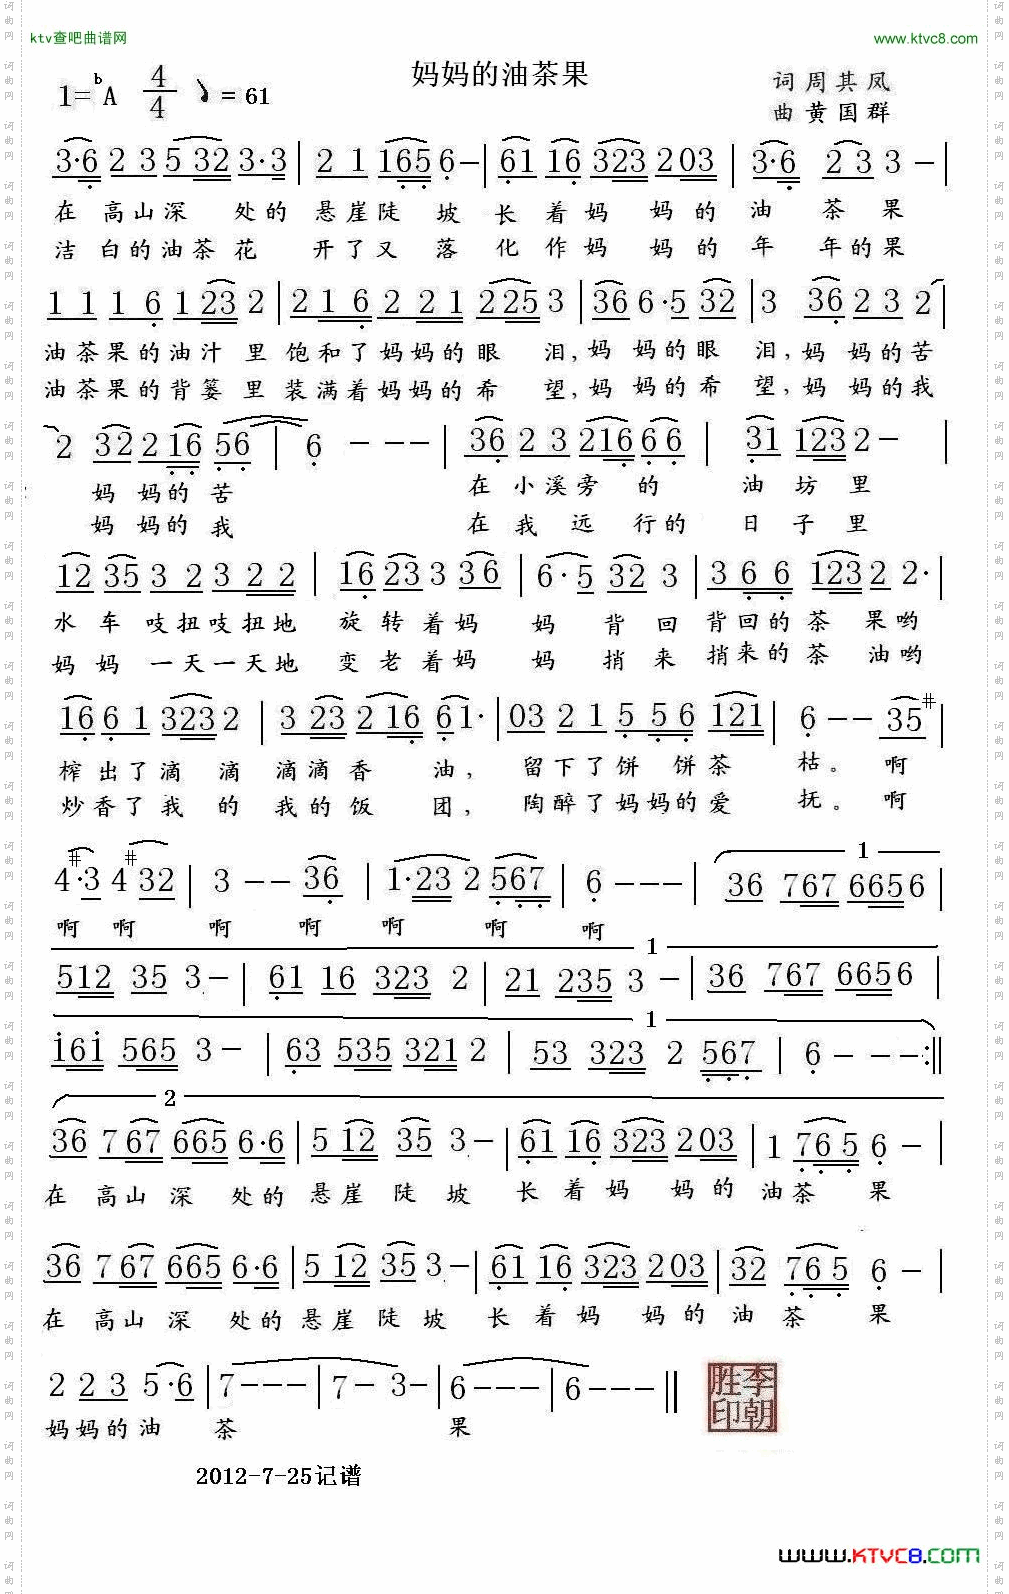 ktv查吧曲谱网 www.ktvc8.com
妈妈的油茶果
1=bA 4/4 = 61
词 周其凤
曲 黄国群
3·6 2 3 5 32 3·3 | 2 1 165 6 – | 61 16 323 203 | 3·6 2 3 3 – |
在 高山深 处的 悬崖陡 坡 长 着 妈 妈 的 油 茶 果
洁 白的油茶花 开了又 落 化 作 妈 妈 的 年 年的果
1 1 1 6 1 23 2 | 2 1 6 2 2 1 2 25 3 | 36 6·5 32 | 3 36 2 3 2 |
油茶果的油汁 里 饱和了妈妈的眼 泪,妈 妈的眼 泪,妈 妈的苦
油茶果的背篓 里 装满着妈妈的希 望,妈 妈的希 望,妈 妈的我
2 32 2 16 56 | 6 – – – | 36 2 3 216 6 6 | 31 123 2 – |
妈 妈的苦 在 小溪旁 的 油 坊 里
妈 妈的我 在我 远 行的 日 子 里
12 35 3 2 3 2 2 | 16 23 3 36 | 6·5 32 3 | 3 6 6 123 2 2· |
水 车 吱扭吱扭地 旋 转 着妈 妈 背 回 背回的茶 果哟
妈妈 一天一天地 变老着妈 妈 捎 来 捎来的茶 油哟
16 6 1 323 2 | 3 23 2 16 6 1· | 03 2 1 5 5 6 121 | 6 – – 35 # |
榨 出了滴 滴 滴滴香 油, 留下了饼 饼茶 枯。 啊
炒香了我 的 我的饭 团, 陶醉了妈妈的爱 抚。 啊
#4·3 #4 32 | 3 – – 36 | 1·23 2 567 | 6 – – – | 1 36 767 6656 |
啊 啊 啊 啊 啊 啊 啊
1
512 35 3 – | 61 16 323 2 | 21 235 3 – | 36 767 6656 |
1
161 565 3 – | 63 535 321 2 | 53 323 2 567 | 6 – – – :||
2
36 7 67 665 6·6 | 5 12 35 3 – | 61 16 323 203 | 1 76 5 6 – |
在 高山 深 处的 悬崖 陡 坡 长 着 妈 妈 的 油茶 果
36 7 67 665 6·6 | 5 12 35 3 – | 61 16 323 203 | 32 76 5 6 – |
在 高山 深 处的悬崖 陡坡 长 着 妈 妈 的 油 茶 果
2 2 3 5·6 | 7 – – – | 7 – 3 – | 6 – – – | 6 – – – ||
妈妈的油 茶 果
李朝胜印
2012-7-25记谱
www.KTVC8.com